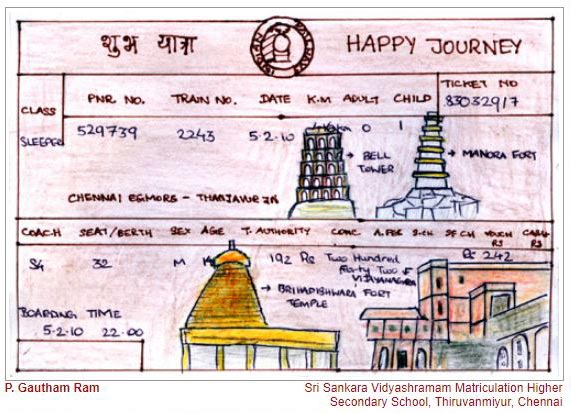 शुभ यात्रा
INDIAN RAILWAY
HAPPY JOURNEY
TICKET NO
83032917
CLASS
PNR NO. TRAIN NO. DATE K.M ADULT CHILD
SLEEPER 529739 2243 5.2.10 0 1
BELL TOWER
MANORA FORT
CHENNAI EGMORE - THANJAVUR JN
COACH SEAT/BERTH SEX AGE T. AUTHORITY CONC
S4 32 M 192 Rs Two Hundred Forty Two
Rs 242
VIJAYANAGRA
BRIHADISHWARA FORT TEMPLE
BOARDING TIME
5.2.10 22.00
P. Gautham Ram
Sri Sankara Vidyashramam Matriculation Higher
Secondary School, Thiruvanmiyur, Chennai